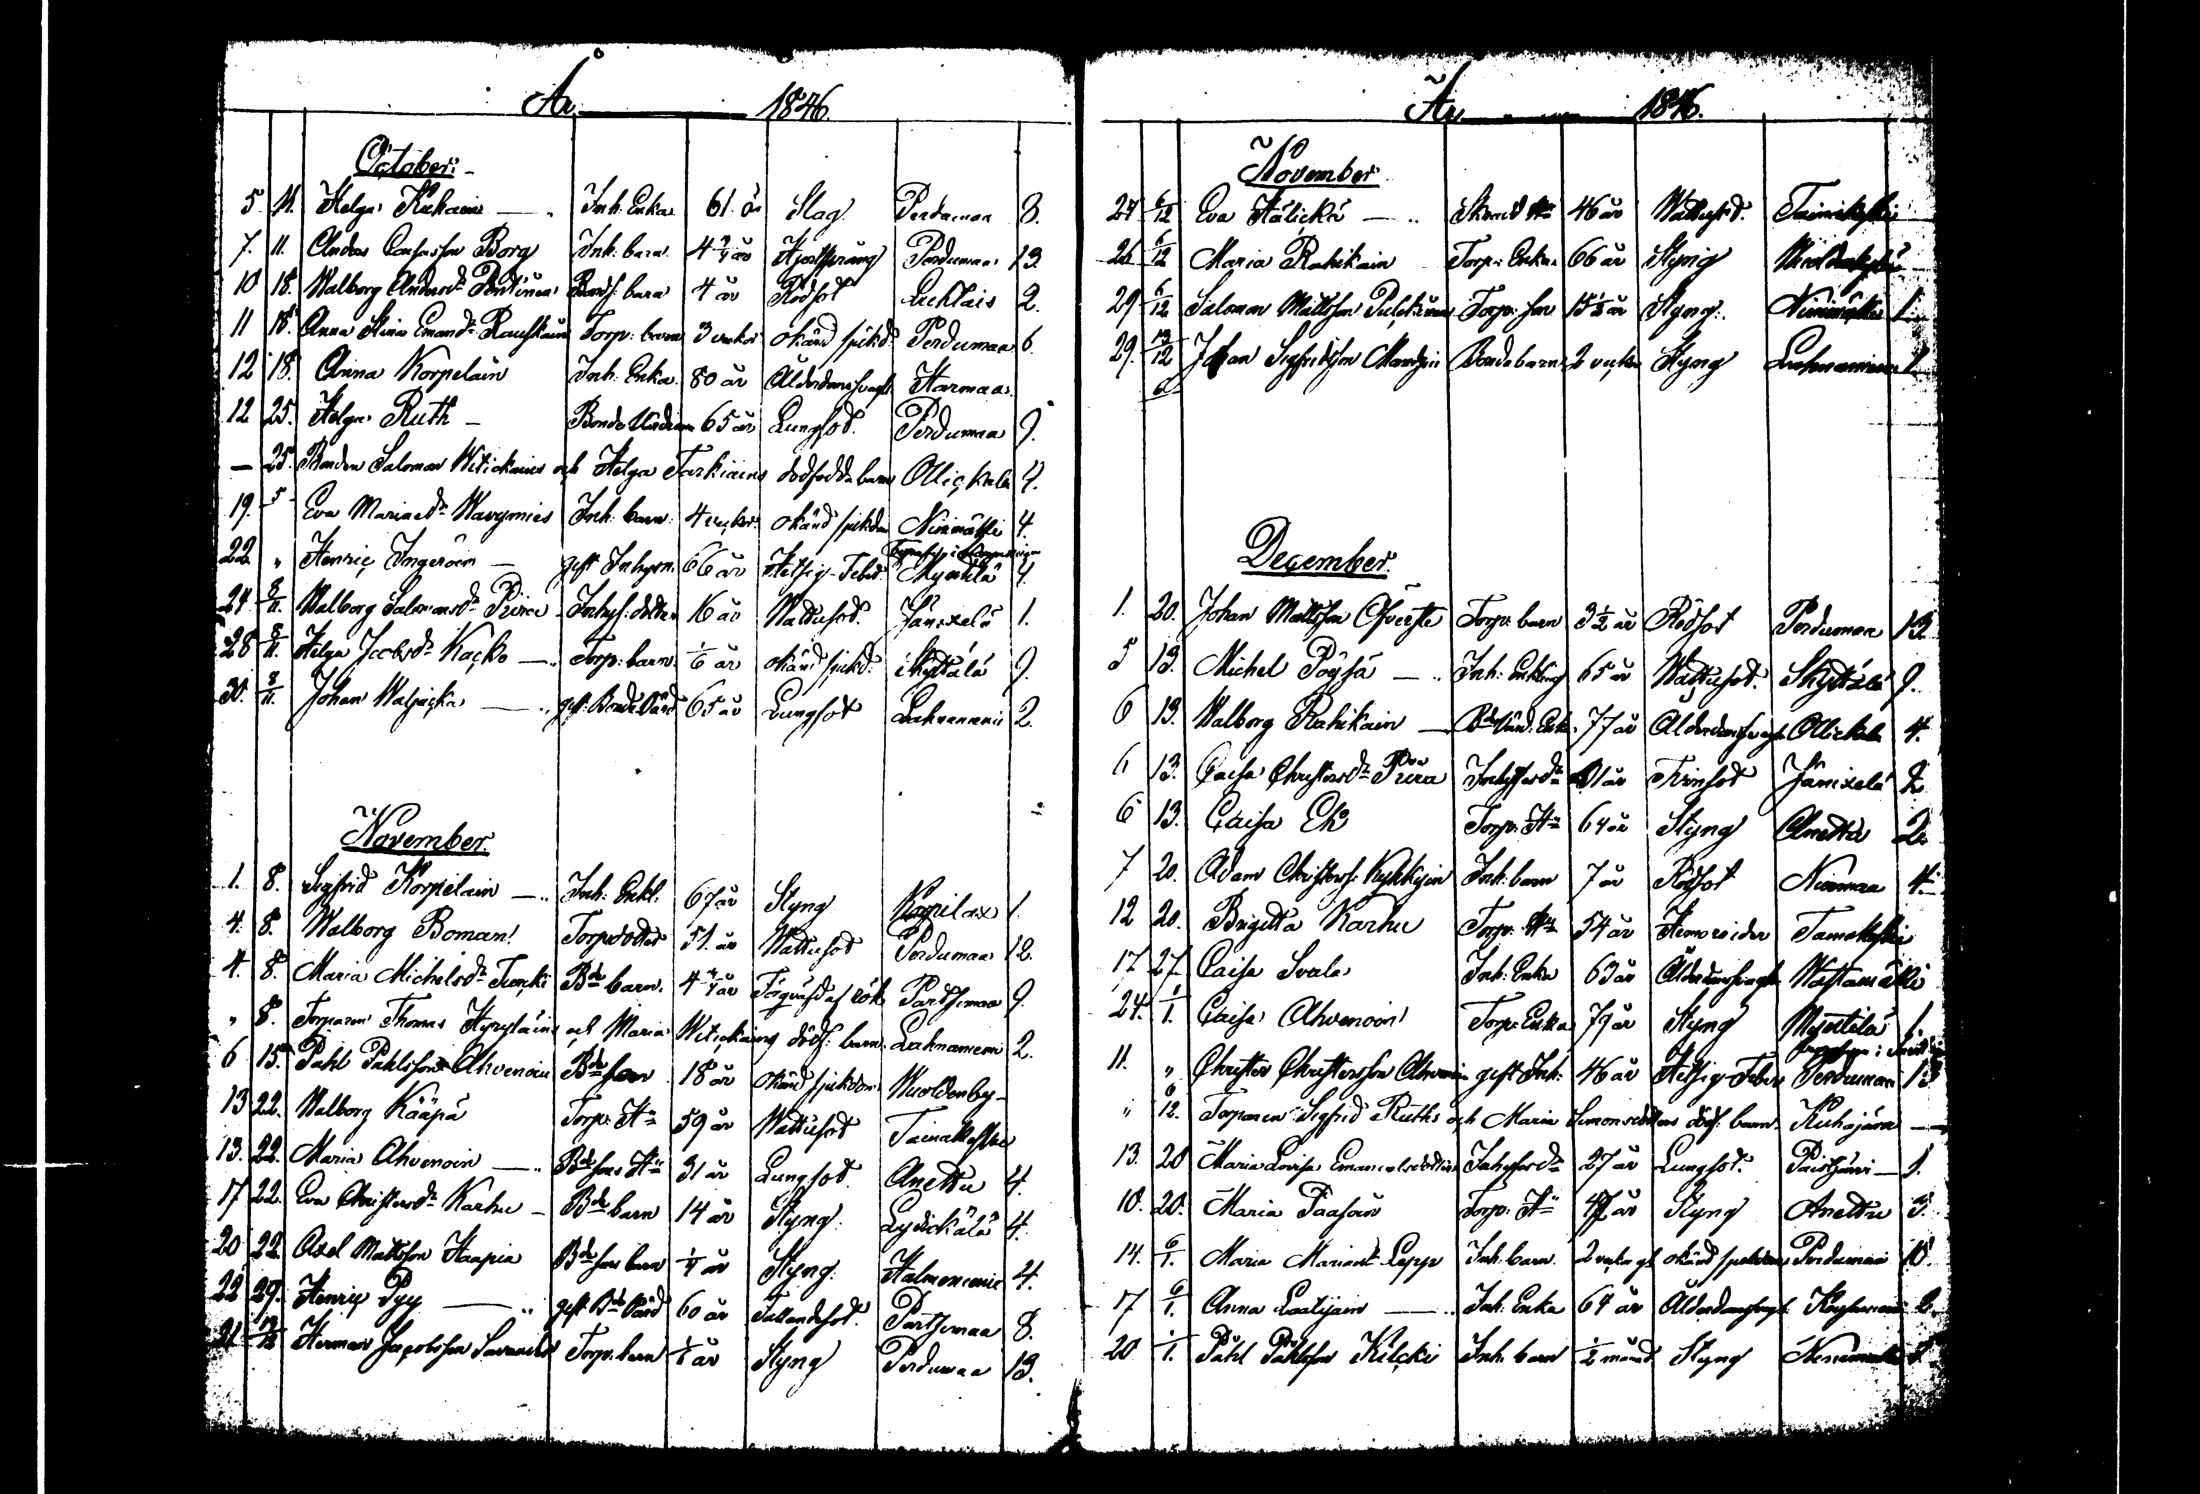 År 1846.
October:
5. 11. Helga Kukain Inh. Enka 61 år Slag Perdumaa 3.
7. 11. Anders Borg Inh. barn 4 3/4 år Hjertsprång Perdumaa 13.
10 18. Walborg Andersdr Penttinen barn 4 år Rödsot Luhtais 2.
11 18. Anna Stina Emandr Torp. barn 3 veckor okänd sjukd. Perdumaa 6.
12 18. Anna Korpelain Inh. Enka 80 år Ålderdomsvagh. Harmaa
12 25. Helga Ruth Bonde 65 år Lungsot. Perdumaa 9.
— 25. Bonden Salomon Witickains och Helga Tarkiains dödfödda barn Ollickala 4.
19. 5 Eva Mariaedr Warymies Inh. barn 4 veckor okänd sjukdom Niinimäki 4.
22. " Henric Ingeröin gift Inhysn. 66 år Hetsig-Feber Myntilä 4.
24 8/11. Walborg Salomonsdr Piira Inhys. dotter 16 år Wattusot. Jänixelä 1.
28 8/11. Helga Jacobsdr Kacko Torp. barn 1/6 år okänd sjukd. Skyttälä 9.
30. 8/11. Johan Waljacka gift Bonde 65 år Lungsot Lahnaniemi 2.
November.
1. 8. Sigfrid Korpelain Inh. Enkl. 67 år Styng Karilax 1.
4. 8. Walborg Boman Torpdotter 51 år Wattusot Perdumaa 12.
4. 8. Maria Michelsdr Bde barn. 4 3/4 år Förqväfd af rök Partsimaa 9.
" 8. Torparen Thomas Hyrylains och Maria Witickains dödf. barn Lahnaniemi 2.
6 15. Pahl Pahlsson Ahvenain Bde son 18 år okänd sjukdom Wuoldenby
13 22. Walborg Kääpä Torp. Hu 59 år Wattusot
13. 22. Maria Ahvenoin Bde sons Hu 31 år Lungsot. Anettu 4.
17 22. Eva Christersdr Karhu Bde barn 14 år Styng. Lydickälä 4.
20 22 Axel Mattsson Haapia Bde sons barn 1/4 år Styng. Halmeniemi 4.
22 29. Henric Pyy gift Bde 60 år Partsimaa 8.
21 13/12 Herman Jacobsson Torp. barn 1/8 år Styng Perdumaa 13.
År 1846.
November
24 6/12 Eva Hälickä 46 år Wattusot.
26 6/12 Maria Rahikain Torp. Enka 66 år Styng
29 6/12 Salomon Mattsson Torp. son 15 1/2 år Styng. Niinimäki 1.
29. 13/12 Johan Sigfridsson Bonde barn 2 veckor Styng Lahnaniemi 1.
December.
1. 20. Johan Mattsson Torp. barn 3 1/2 år Rödsot Perdumaa 13
5 13. Michel Pöysä Inh. Enkling 65 år Wattusot. Skyttälä 9.
6 13. Walborg Rahikain Enka 77 år Ålderdomsvagh. Ollickala 4.
6 13. Caisa Christersdr Piira Inhysesdr Tvinsot Jänixelä 2
6 13. Caisa Ek Torp. Hu 64 år Styng Anettu 2.
7 20. Adam Christers. Kykkyin Inh. barn 7 år Rödsot Niinmaa 4.
12 20. Brigitta Karhu Torp. Hu 54 år Hemoroider
17 27 Caisa Svala Inh. Enka 63 år Ålderdomsvagh.
24. 1/1. Caisa Ahvenoin Torp. Enka 79 år Styng Myntilä 1.
11. " Christer Christersson gift Inh. 46 år Hetsig-Feber Perdumaa 13
" 6/12. Torparen Sigfrid Ruths och Maria Simonsdotters dödf. barn Kuhajärvi —
13. 20 Maria Lovisa Emanuelsdotter Inhysesdr 27 år Lungsot. Paistjärvi 1.
10. 20. Maria Paasoin Torp. Hu 47 år Styng Anettu 3.
14. 6/1. Maria Mariaedr Lepp Inh. barn. okänd sjukdom Perdumaa 10.
17 6/1. Anna Laatijain Inh. Enka 64 år Ålderdomsvagh. 2.
20 1/1. Påhl Påhlsson Kilcki Inh. barn 1/2 månad Styng